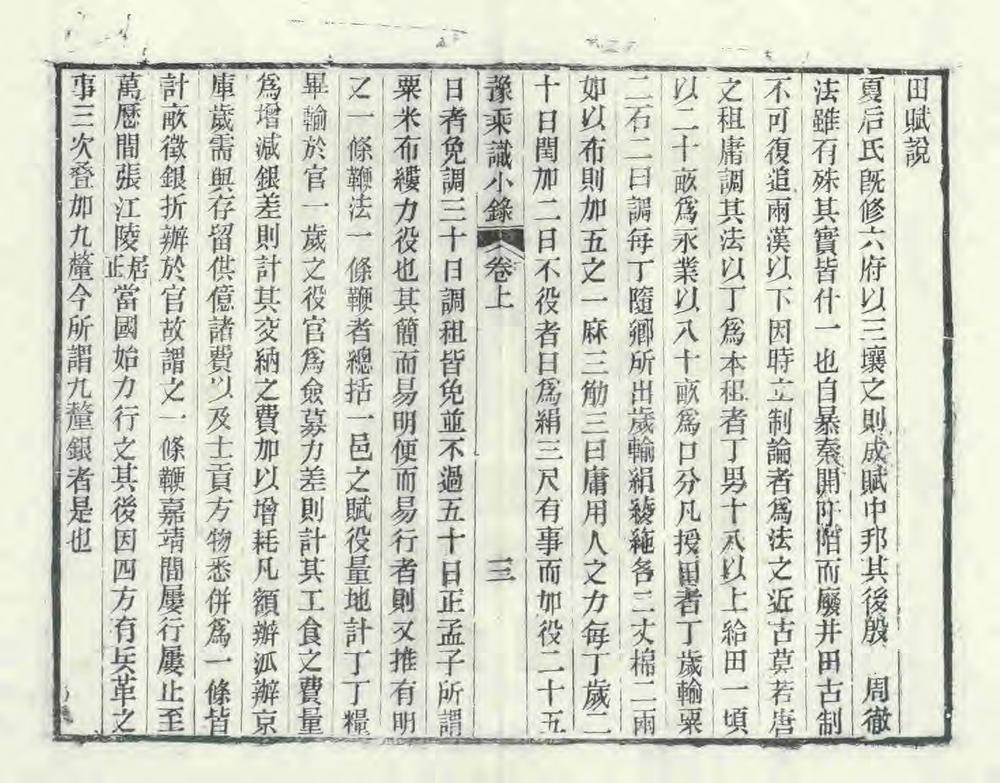 田賦說
夏后氏旣修六府以三壤之則成賦中邦其後殷　周徹
法雖有殊其實皆什一也自暴秦開阡陌而廢井田古制
不可復追兩漢以下因時立制論者爲法之近古莫若唐
之租庸調其法以丁爲本租者丁男十八以上給田一頃
以二十畝爲永業以八十畝爲口分凡授田者丁歲輸粟
二石二曰調每丁隨鄕所出歲輸絹綾絁各二丈棉二兩
如以布則加五之一麻三觔三曰庸用人之力每丁歲二
十日閏加二日不役者日爲絹三尺有事而加役二十五
豫乘識小錄　卷上　三
日者免調三十日調租皆免並不過五十日正孟子所謂
粟米布縷力役也其簡而易明便而易行者則又推有明
之一條鞭法一條鞭者總括一邑之賦役量地計丁丁糧
畢輸於官一歲之役官爲僉募力差則計其工食之費量
爲增減銀差則計其交納之費加以增耗凡額辦派辦京
庫歲需與存留供億諸費以及土貢方物悉併爲一條皆
計畝徵銀折辦於官故謂之一條鞭嘉靖間屢行屢止至
萬歷間張江陵居正當國始力行之其後因四方有兵革之
事三次叠加九釐今所謂九釐銀者是也